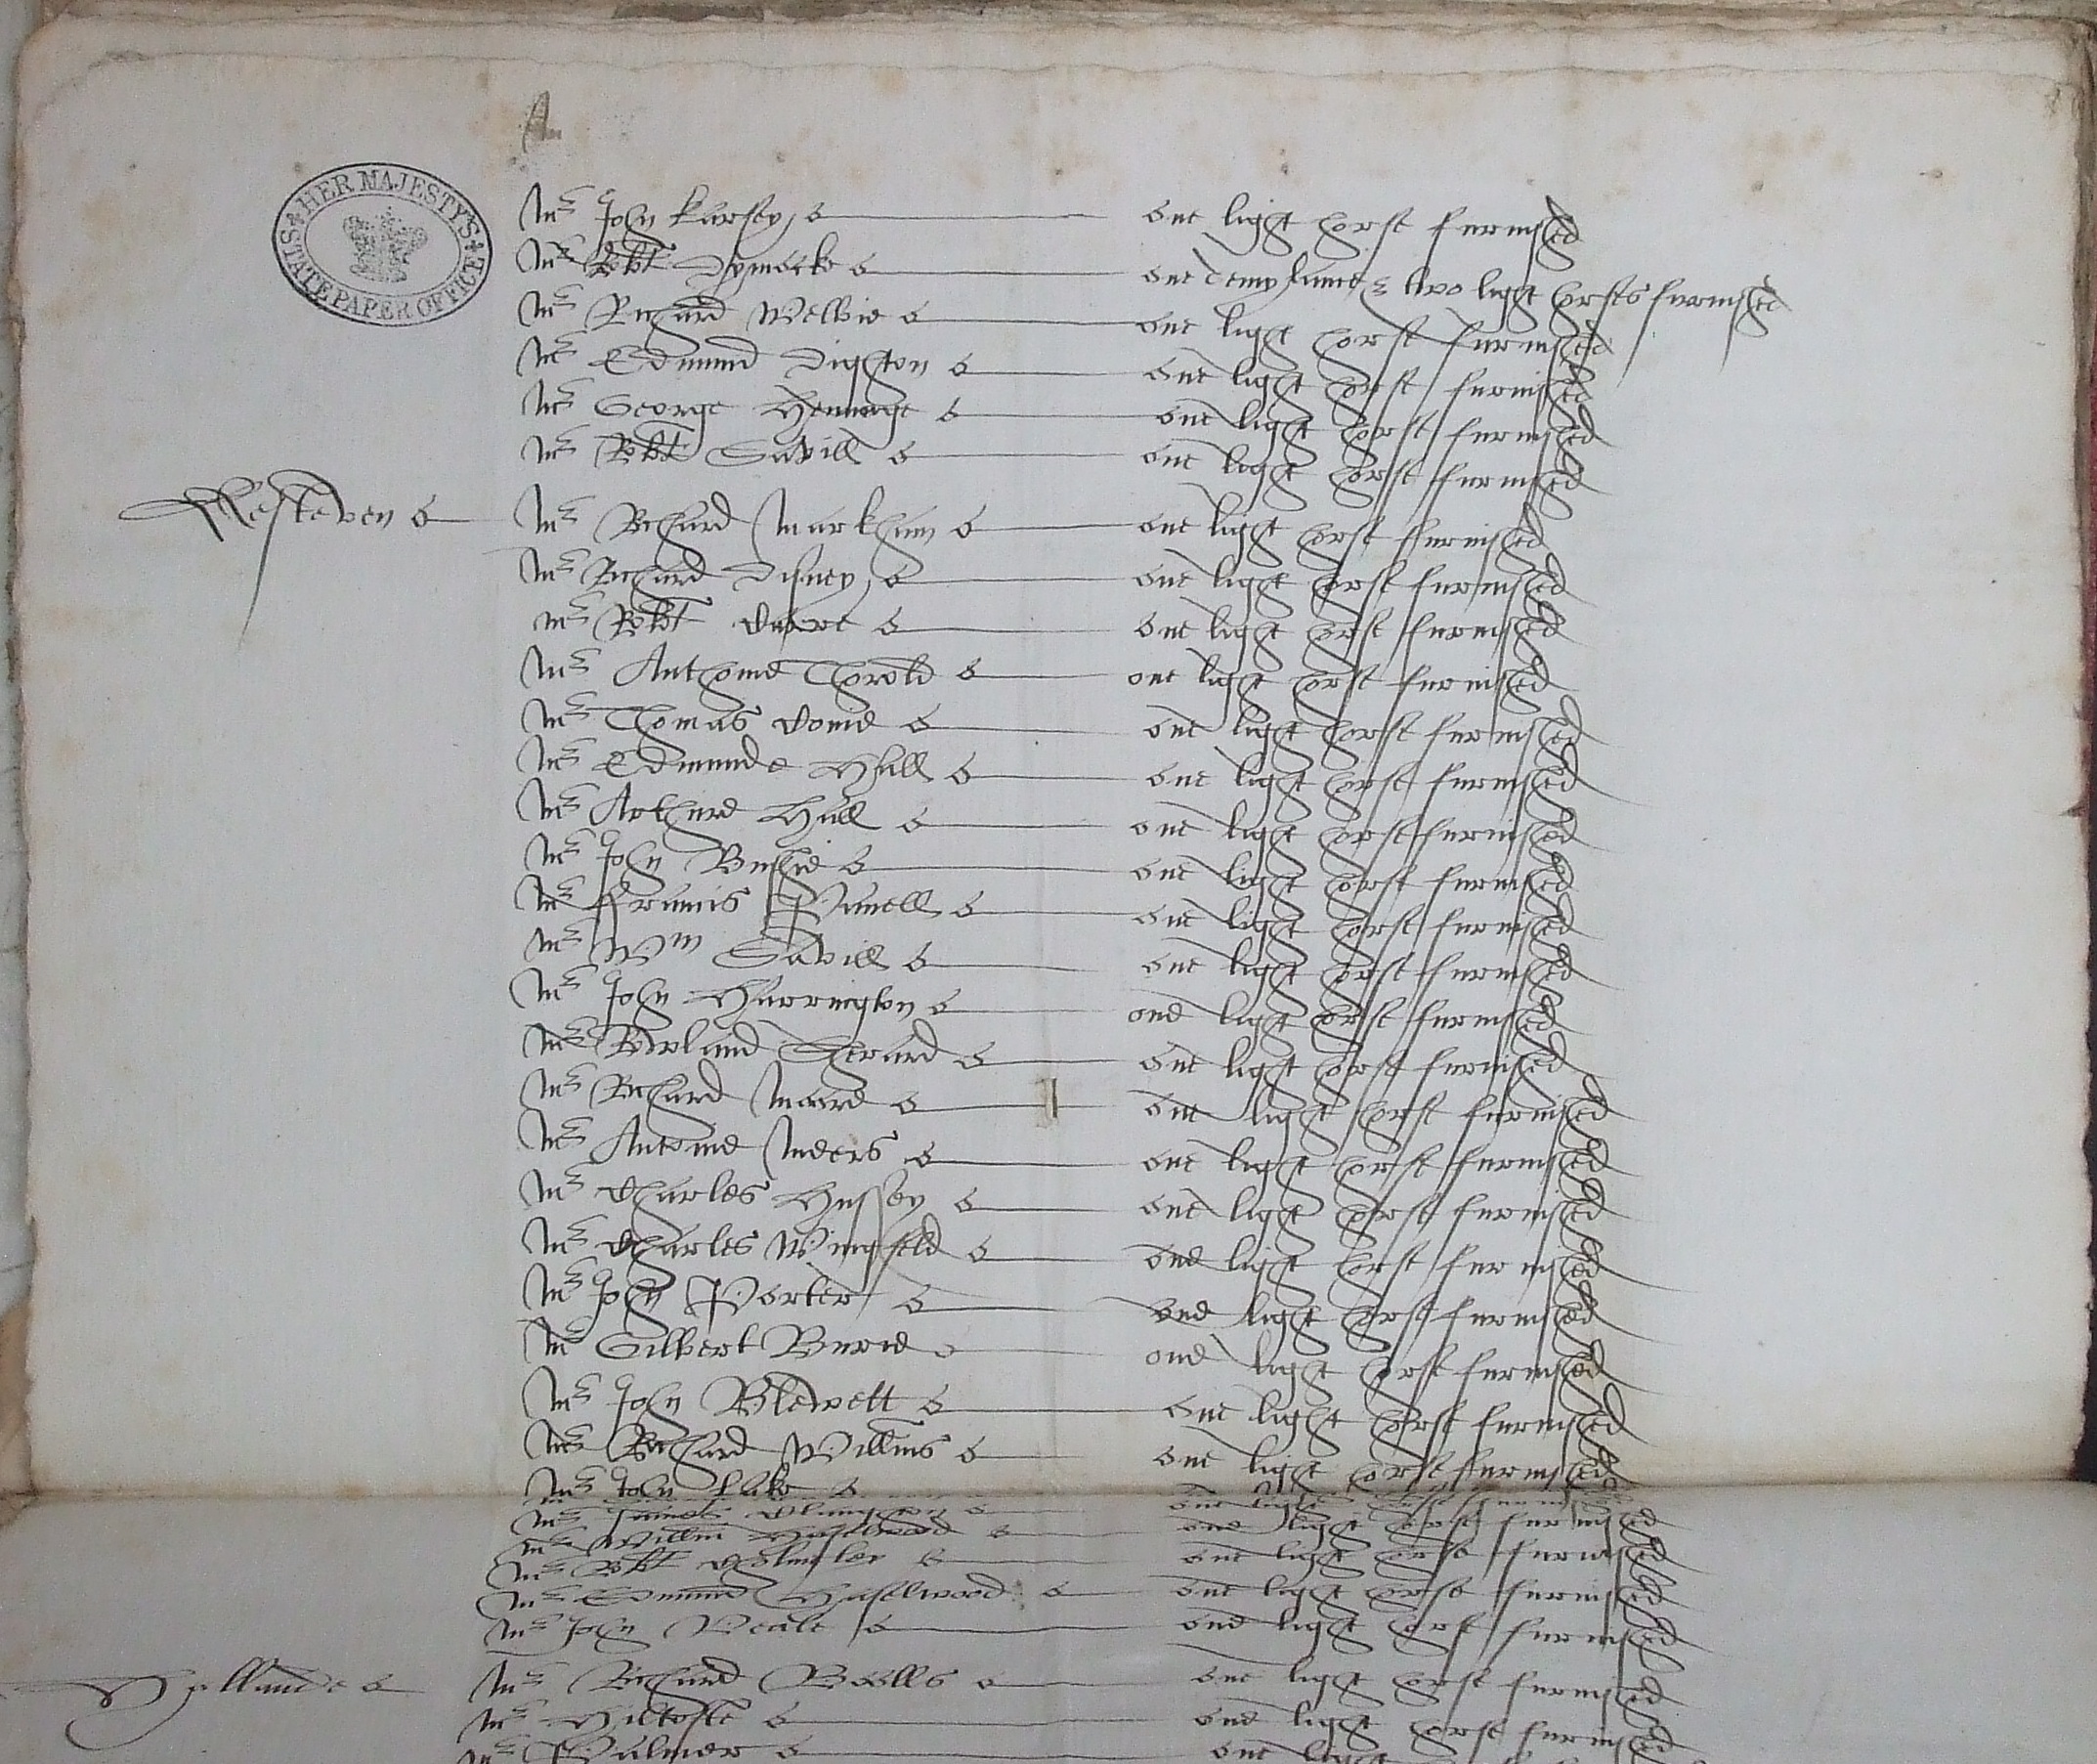 HER MAJESTY'S STATE PAPER OFFICE
Mr John karsey one light horse furnished
Mr Robt Dymocke one demylaunce & two light horses furnished
Mr Richard Welbie one light horse furnished
Mr Edmund Dighton one light horse furnished
Mr George Hennege one light horse furnished
Mr Robt Savill one light horse furnished
Kesteven Mr Richard Markham one light horse furnished
Mr Richard Disney one light horse furnished
Mr Robt Carre one light horse furnished
Mr Anthonie Thorold one light horse furnished
Mr Thomas Conie one light horse furnished
Mr Edmunde Hall one light horse furnished
Mr Arthure Hall one light horse furnished
Mr John Bushie one light horse furnished
Mr Francis Panell one light horse furnished
Mr Wm Savill one light horse furnished
Mr John Harrington one light horse furnished
Mr Rowland Sherard one light horse furnished
Mr Richard Moore one light horse furnished
Mr Antonie Meers one light horse furnished
Mr Charles Hussey one light horse furnished
Mr Charles Wingfeld one light horse furnished
Mr John Porter one light horse furnished
Mr Gilbert Burie one light horse furnished
Mr John Blewett one light horse furnished
Mr Richard Williams one light horse furnished
Mr John Lake one light horse furnished
Mr James one light horse furnished
Mr Willm Haselwood one light horse furnished
Mr Robt one light horse furnished
Mr Edmund Haselwood one light horse furnished
Mr John one light horse furnished
Hollande Mr Richard Bolls one light horse furnished
Mr one light horse furnished
Mr Palmer one light